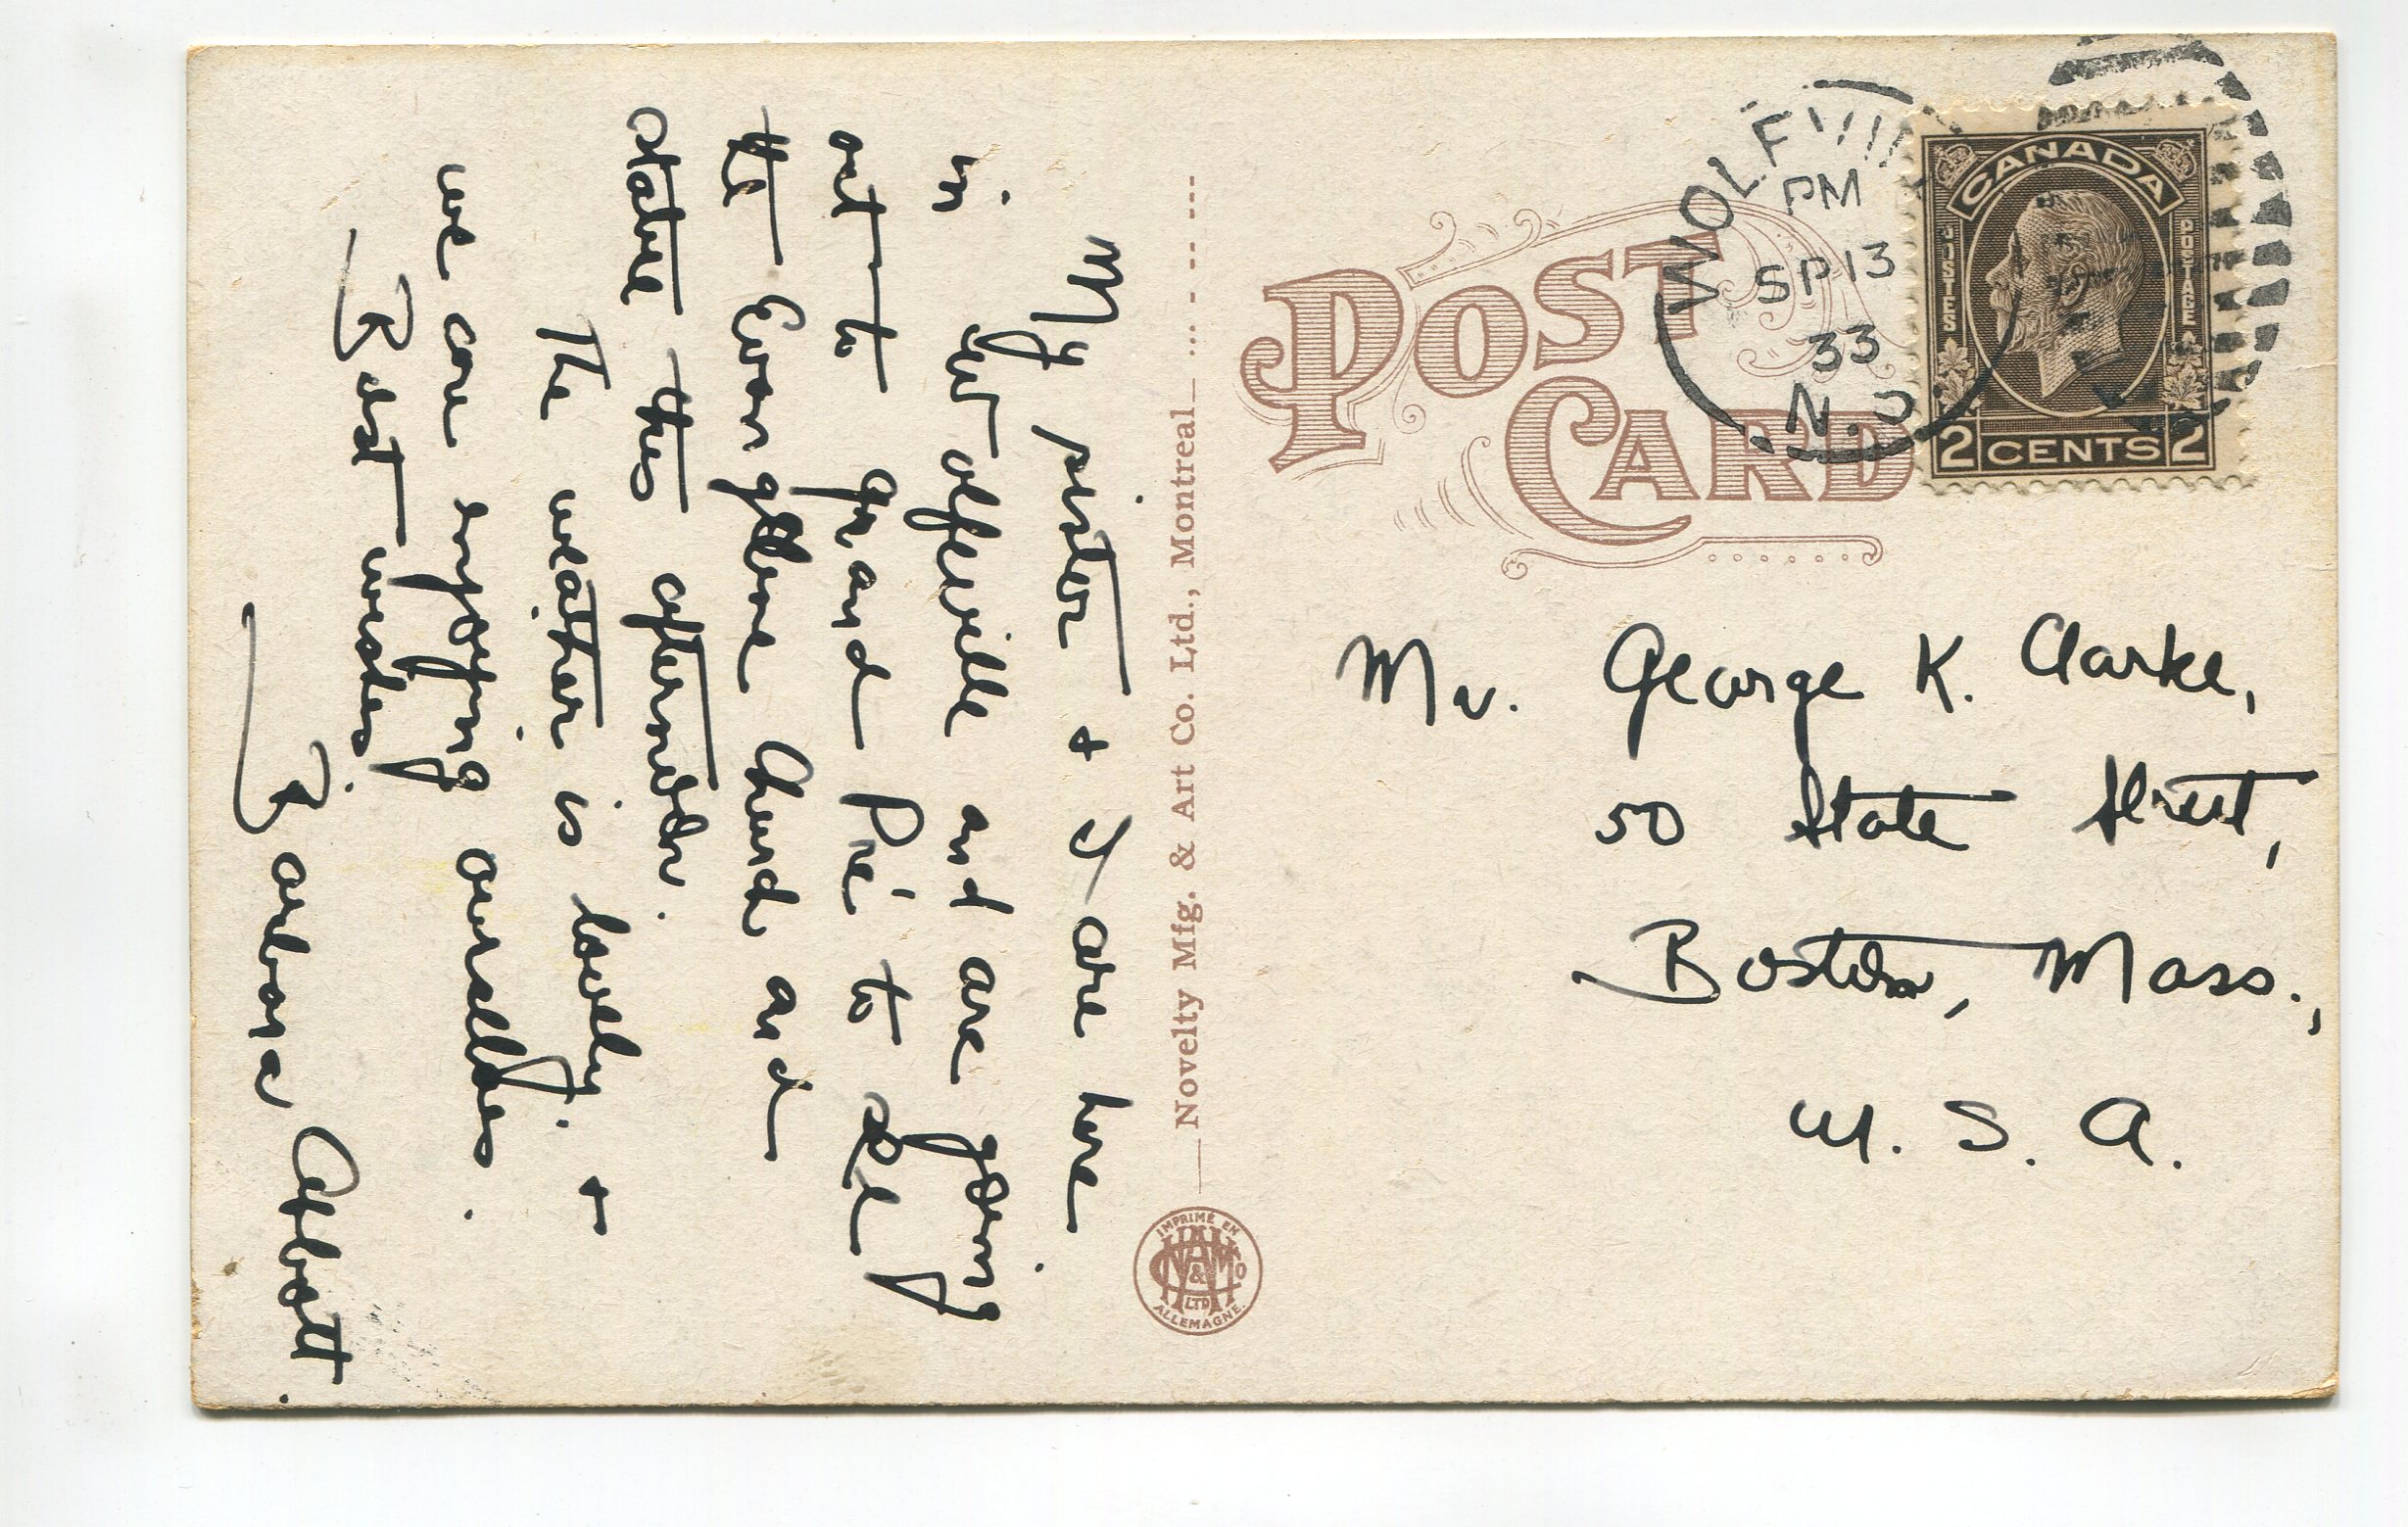 My sister + I are here
in Wolfville and are going
out to Grand Pré to see
the Evangeline Church and
statue this afternoon.
The weather is lovely. +
we are enjoying ourselves.
Best wishes
Barbara Abbott.
Novelty Mfg. & Art Co. Ltd., Montreal
IMPRIMÉ EN
ALLEMAGNE.
LTD
POST
CARD
WOLFVILL
PM
SP 13
33
N.S
CANADA
POSTES
POSTAGE
2 CENTS 2
Mr. George K. Clarke,
50 State Street,
Boston, Mass.,
U. S. A.